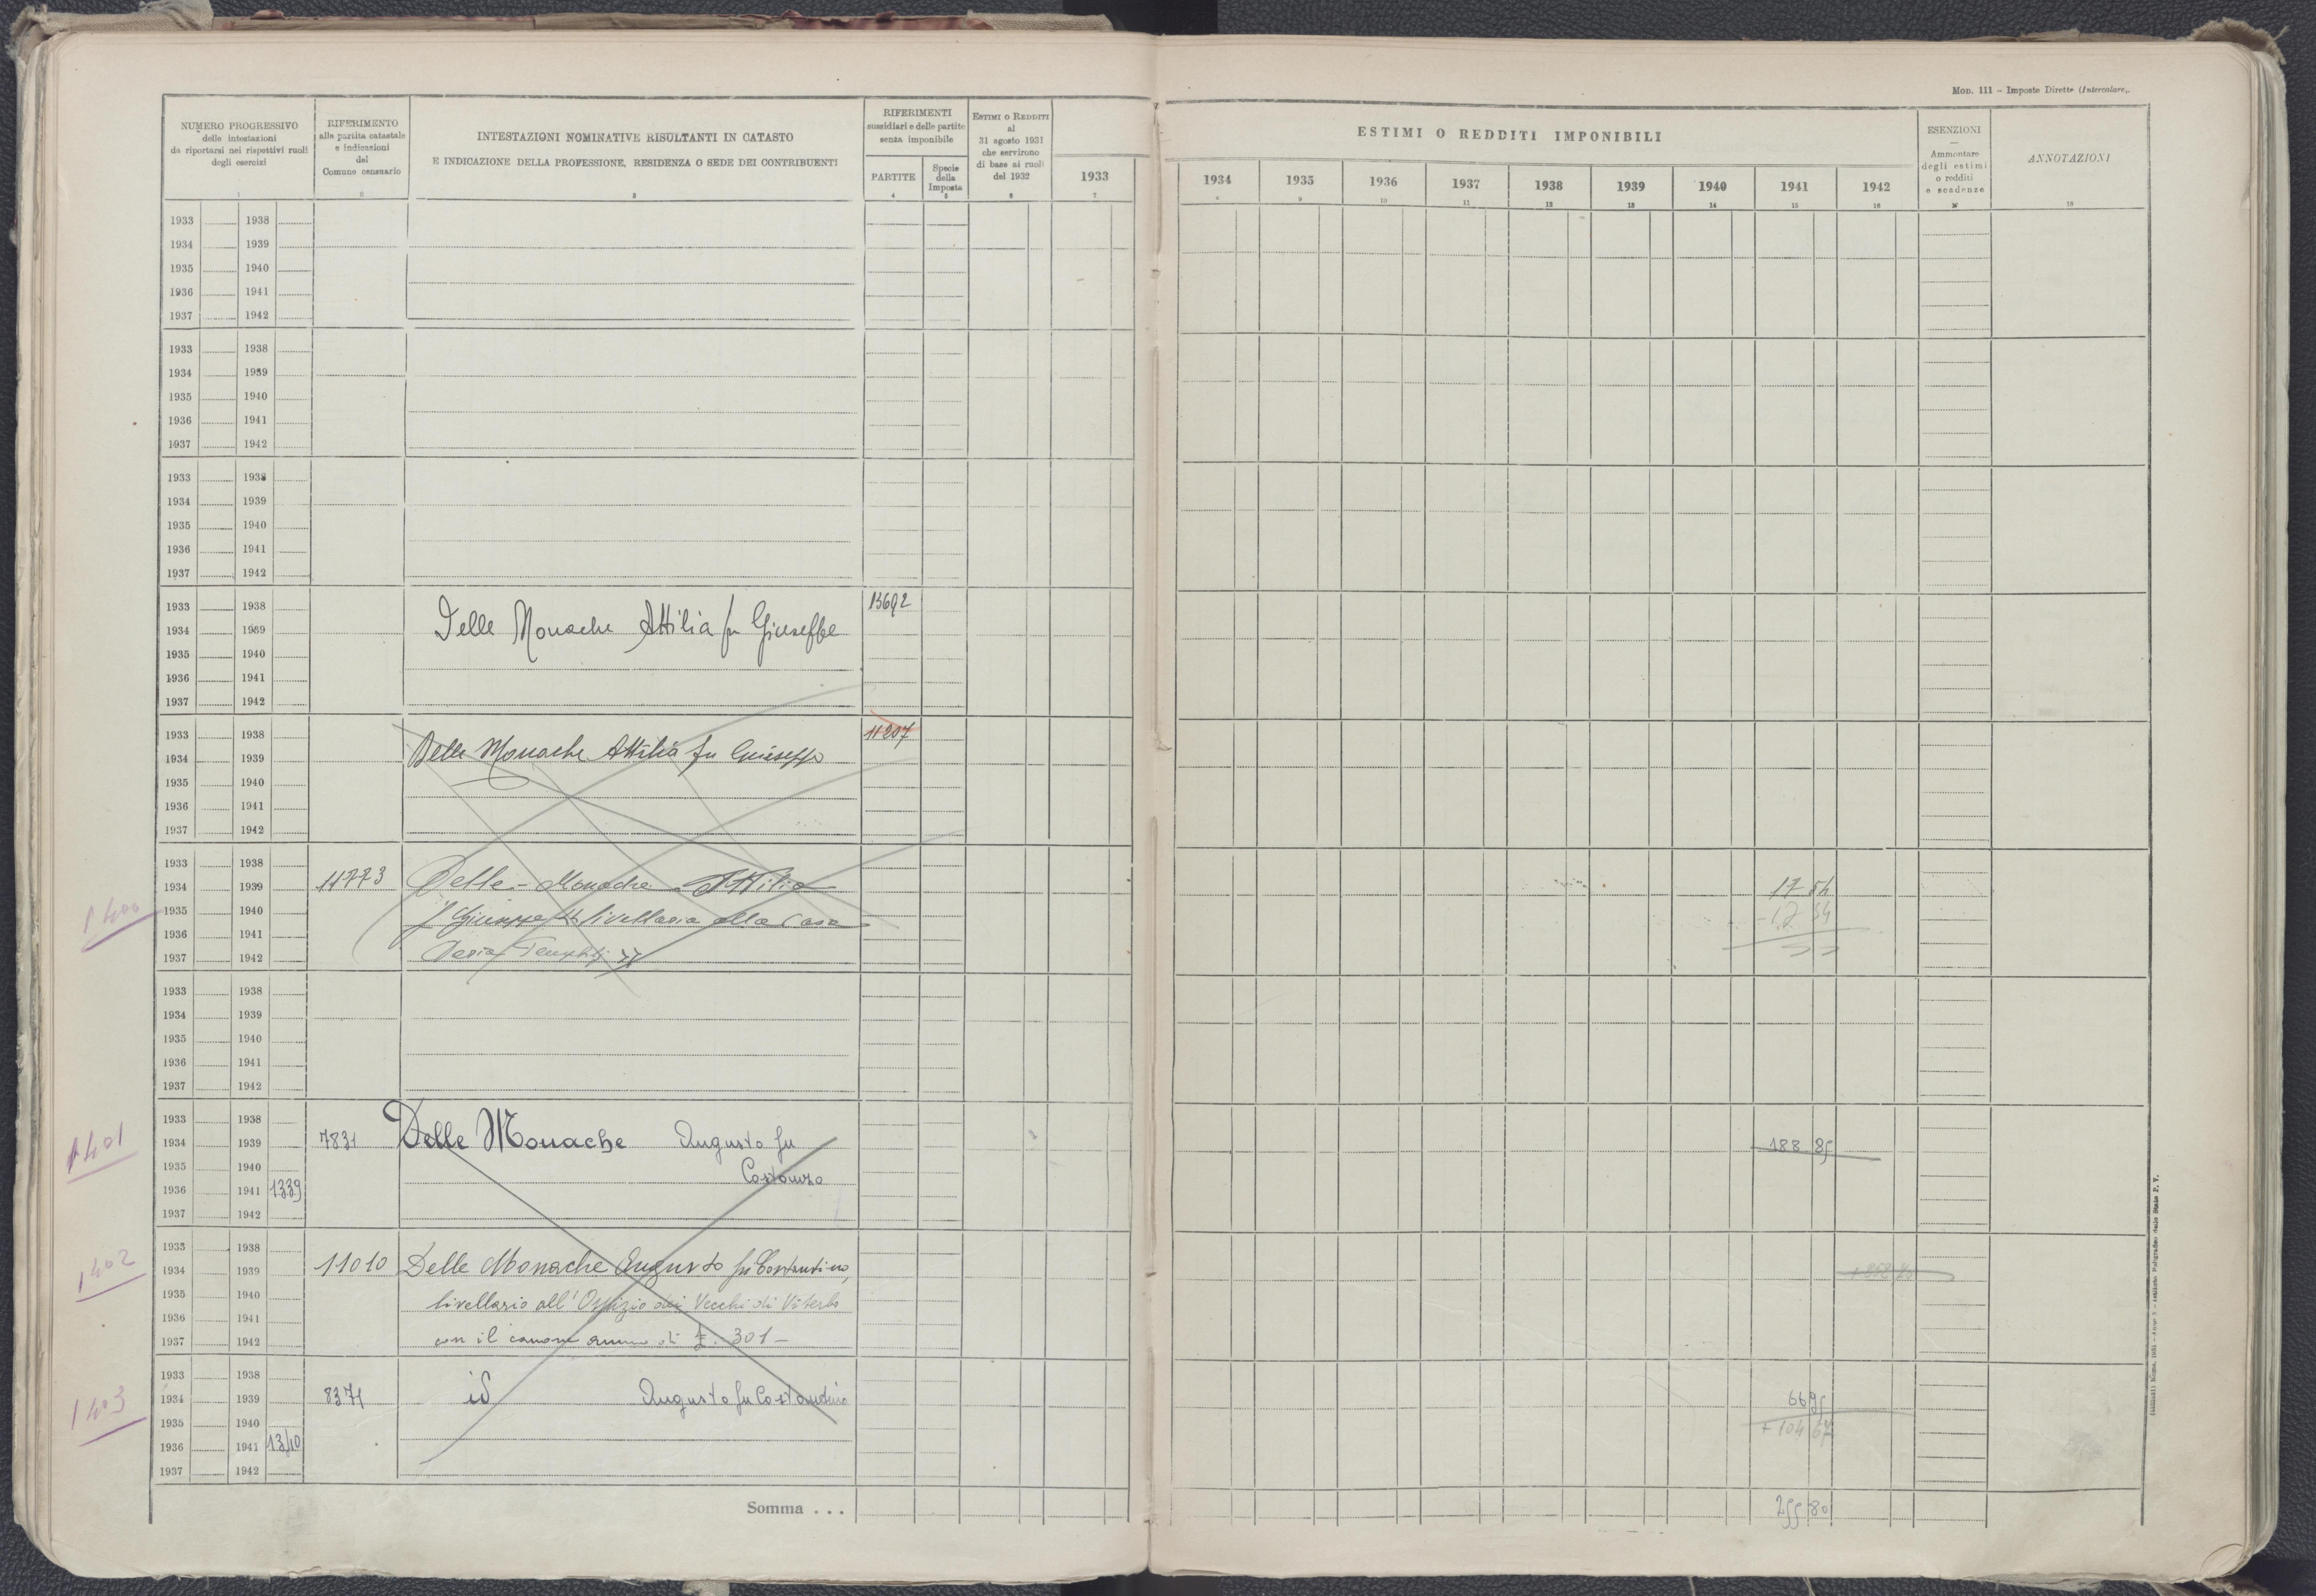 Mod. 111 - Imposte Dirette (Intercalare).
NUMERO PROGRESSIVO
delle intestazioni
da riportarsi nei rispettivi ruoli
degli esercizi
1
RIFERIMENTO
alla partita catastale
e indicazioni
del
Comune censuario
2
INTESTAZIONI NOMINATIVE RISULTANTI IN CATASTO
E INDICAZIONE DELLA PROFESSIONE, RESIDENZA O SEDE DEI CONTRIBUENTI
3
RIFERIMENTI
sussidiari e delle partite
senza imponibile
PARTITE
4
Specie
della
Imposta
5
ESTIMI O REDDITI
al
31 agosto 1931
che servirono
di base ai ruoli
del 1932
6
1933
7
ESTIMI O REDDITI IMPONIBILI
1934 1935 1936 1937 1938 1939 1940 1941 1942
9 10 11 12 13 14 15 16
ESENZIONI
Ammontare
degli estimi
o redditi
e scadenze
ANNOTAZIONI
18
1933 1938
1934 1939
1935 1940
1936 1941
1937 1942
1933 1938
1934 1939
1935 1940
1936 1941
1937 1942
1933 1938
1934 1939
1935 1940
1936 1941
1937 1942
1933 1938 13692
1934 1939 Delle Monache Attilia fu Giuseppe
1935 1940
1936 1941
1937 1942
1933 1938 11207
1934 1939 Delle Monache Attilia fu Giuseppe
1935 1940
1936 1941
1937 1942
1933 1938
1934 1939 11773 Delle Monache Attilia 17 54
1400 1935 1940 f Giuseppe livellaria alla Casa -17 54
1936 1941
1937 1942
1933 1938
1934 1939
1935 1940
1936 1941
1937 1942
1933 1938
1401 1934 1939 7831 Delle Monache Augusto fu 188 85
1935 1940 Costanzo
1936 1941 1339
1937 1942
1933 1938
1402 1934 1939 11010 Delle Monache Augusto fu Costantino,
1935 1940 livellario all'Ospizio dei Vecchi di Viterbo
1936 1941
1937 1942 con il canone annuo di £. 301-
1933 1938
1403 1934 1939 8371 id Augusto fu Costantino 66 95
1935 1940 + 104 67
1936 1941 1340
1937 1942
Somma . . . 255 80